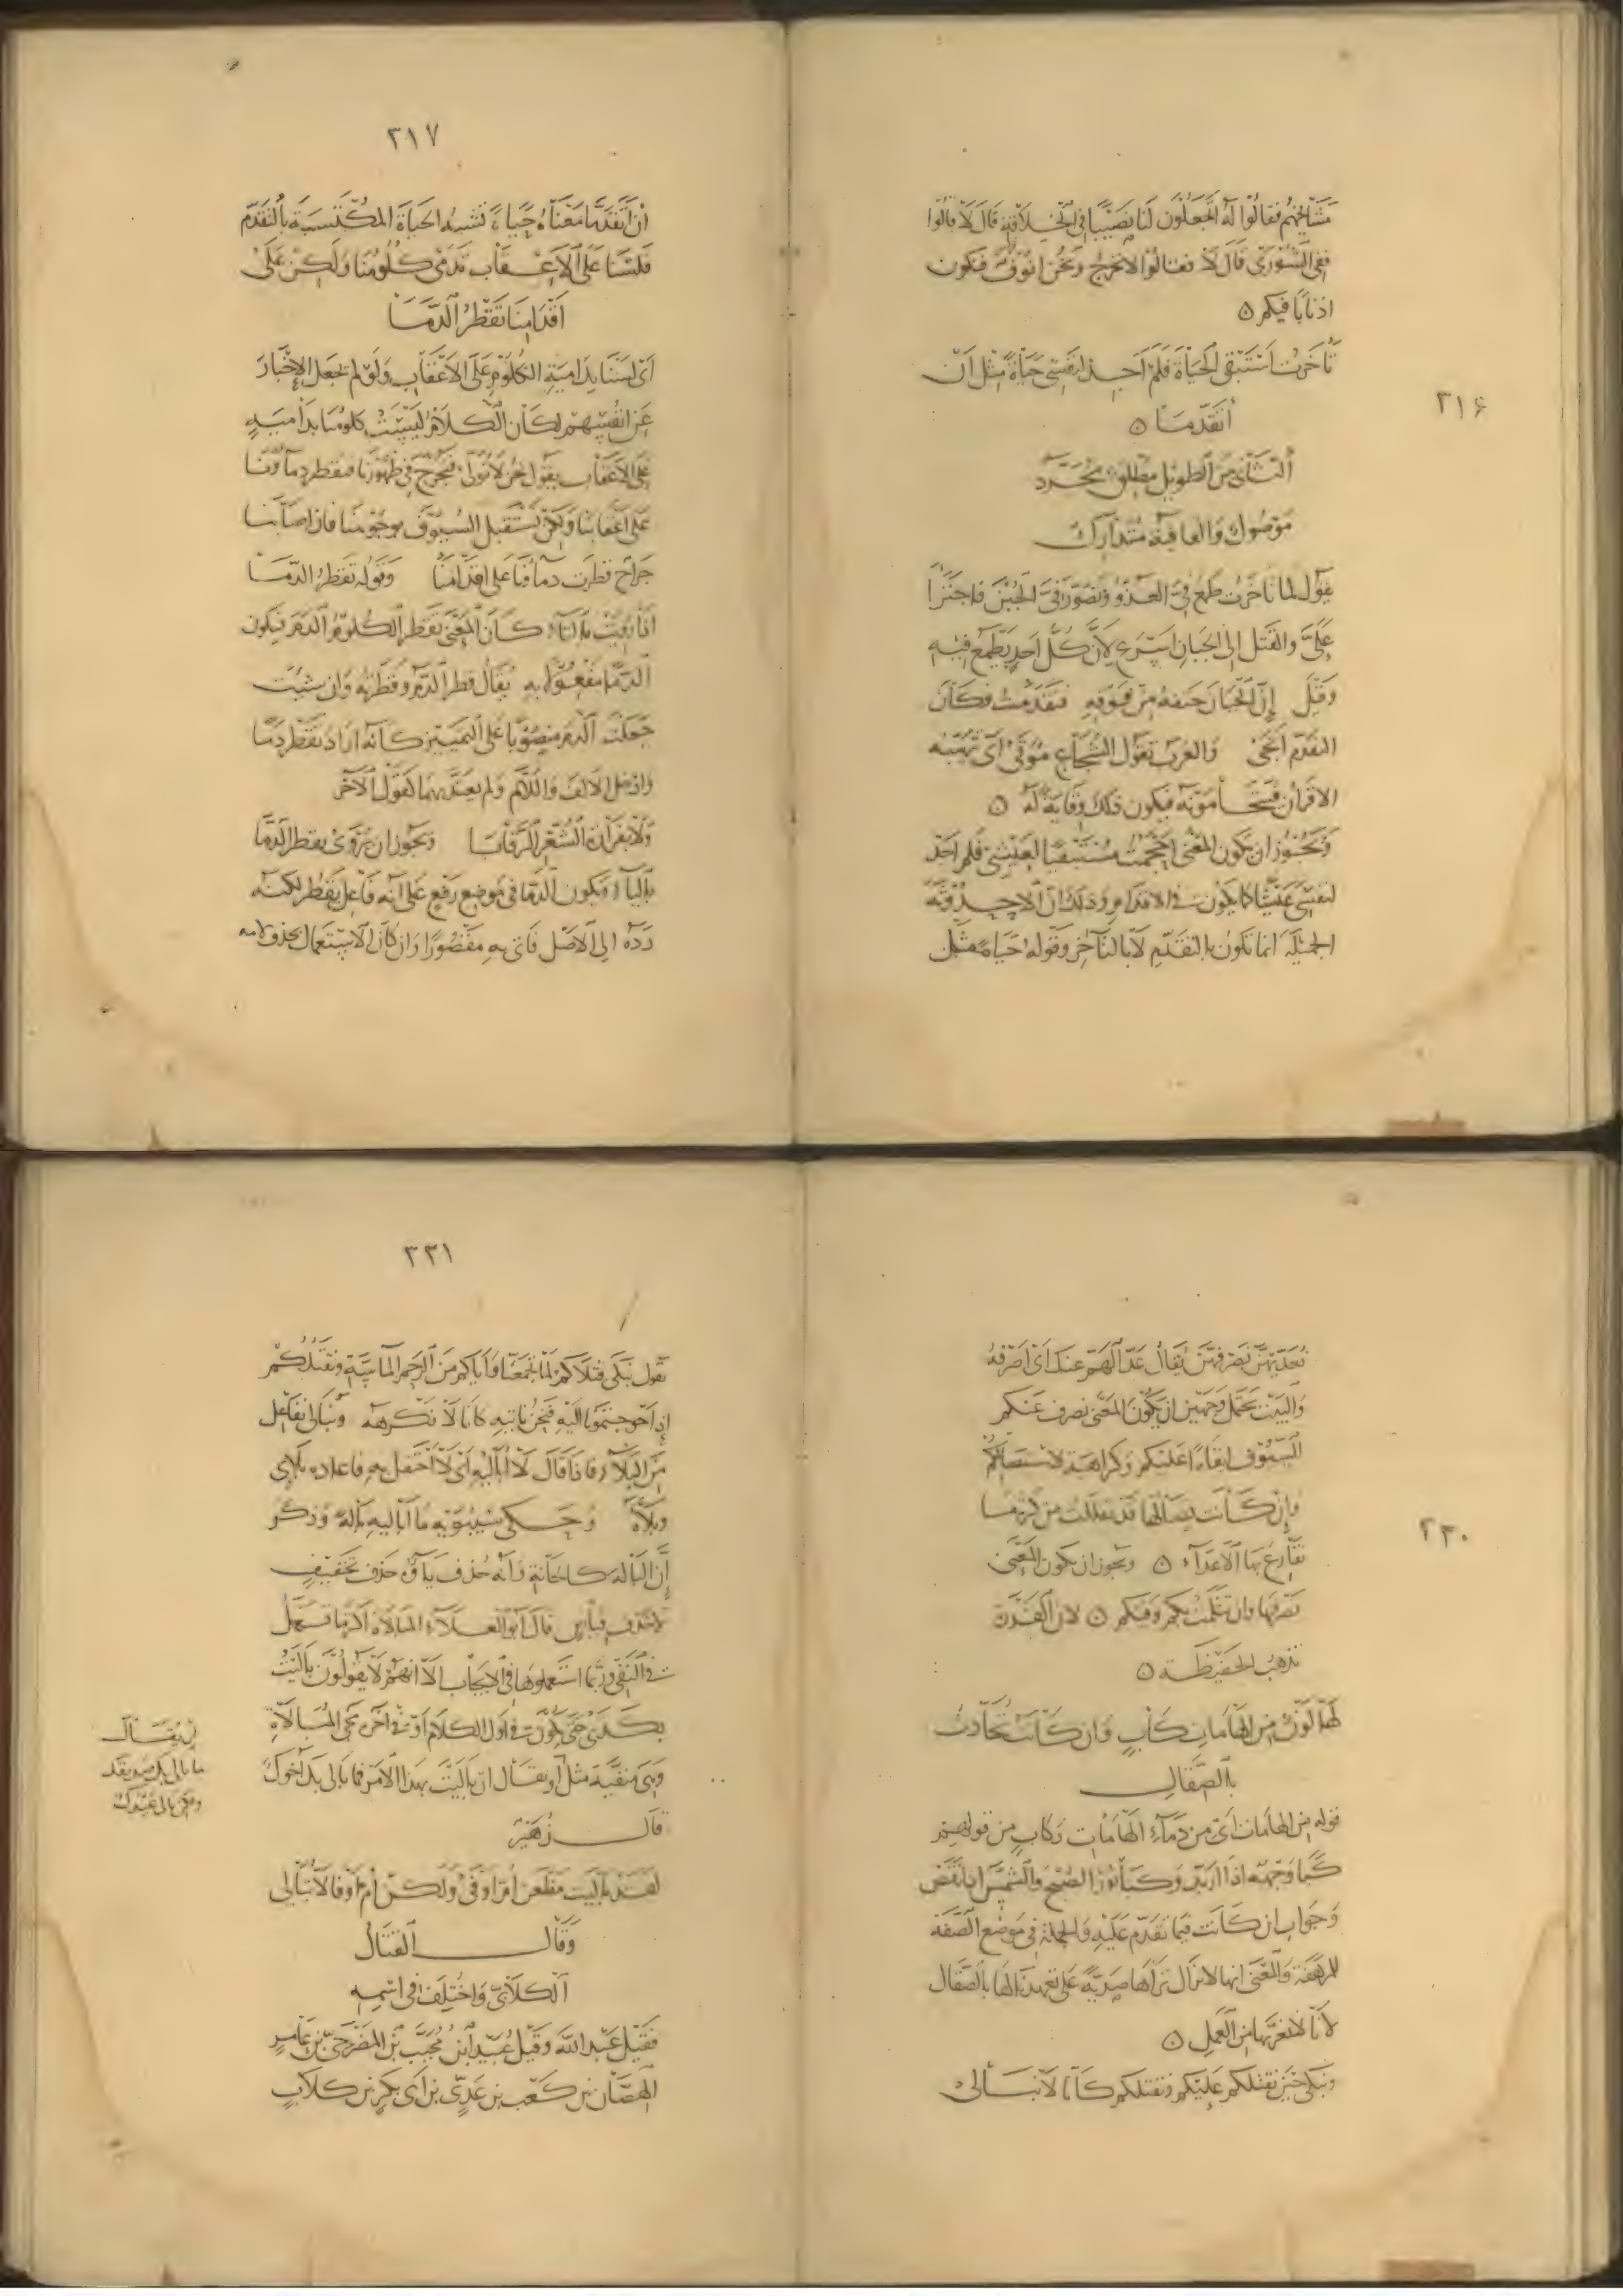 ٢١٦
مشايخهم فقالوا له اتجعلون لنا نصيبا في الخلافة قال لا قالوا
ففي الشورى قال لا فقالوا لا نخرج ونحن انوف فنكون
اذنابا فيكم ه
تأخرت استبقي الحياة فلم اجد لنفسي حياة مثل ان
أتقدما ه
الثاني من الطويل مطلق مجرد
موصول والقافية متدارك
يقول لما تأخرت طمع فيّ العدو وتصور فيّ الجبن فاجترا
عليّ والقتل الى الجبان اسرع لان كل احد يطمع فيه
وقيل إن الجبان حتفه من فوقه فتقدمت فكان
التقدم انجى والعرب تقول الشجاع موقى اى تهيبه
الاقران فتتحامونه فيكون ذلك وقاية له ه
ويجوز ان يكون المعنى احجمت مستبقيا لعيشي فلم اجد
لنفسي عيشا كما يكون في الاقدام وذلك ان الاحدوثة
الجميلة انما تكون بالتقدم لا بالتأخر وقوله حياة مثل
٢١٧
ان اتقدما معناه حياة تشبه الحياة المكتسبة بالتقدم
فلسنا على الاعقاب تدمى كلومنا ولكن على
اقدامنا تقطر الدما
اى لسنا بدامية الكلوم على الاعقاب ولو لم يجعل الاخبار
عن انفسهم لكان الكلام ليست كلومنا بدامية
على الاعقاب يقول نحن لا نولى فنجرح في ظهورنا فتقطر دماؤنا
على اعقابنا ولكن نستقبل السيوف بوجوهنا فان اصابتنا
جراح قطرت دماؤنا على اقدامنا وقوله تقطر الدما
اذا رويت بالتاء كان المعنى تقطر الكلوم الدم فيكون
الدما مفعولا به يقال قطر الدم وقطرته وان شئت
جعلت الدم منصوبا على التمييز كانه اراد تقطر دما
وادخل الالف واللام ولم يعتد بهما كقول الآخر
ولا بفزارة الشعر الرقابا ويجوز ان يروى يقطر الدما
بالياء ويكون الدما في موضع رفع على انه فاعل يقطر لكنه
رده الى الاصل فاتى به مقصورا وان كان الاستعمال بحذف لامه
٢٣٠
نعديهن نصرفهن يقال عد الهم عنك اى اصرفه
والبيت يحتمل وجهين ان يكون المعنى نصرف عنكم
السيوف ابقاء عليكم وكراهية لاستئصالكم
وإن كانت نصالها قد تفللت من كثرة ما
نقارع بها الاعداء ه ويجوز ان يكون المعنى
نصرفها وان تثلمت بكم وفيكم ه لان القدرة
تذهب الحفيظة ه
لها لون من الهامات كاب وان كانت تحادث
بالصقال
قوله من الهامات اى من دماء الهامات وكاب من قولهم
كبا وجهه اذا اربد وكبا نور الصبح والشمس اذا نقص
وجواب ان كانت فيما تقدم عليه والجملة في موضع الصفة
للمرهفة والمعنى انها لا تزال تراها صدية على تعهدنا لها بالصقال
لأنا لا نغبها من العمل ه
ونبكى حين نقتلكم عليكم ونقتلكم كأنا لا نبالى
٢٣١
يقول نبكى قتلاكم لما يجمعنا واياكم من الرحم الماسة ونقتلكم
إذ احوجتمونا اليه فنحن ناتيه كانا لا نكرهه ونبالى نفاعل
من البلاء فاذا قال لا أباليه اى لا احتفل به فاعادّه بلائى
وبلاه وحكى سيبويه ما اباليه بالة وذكر
إن البالة كالحانة وأنه حذف ياؤه حذف تخفيف
لا حذف قياس قال ابو العلاء المبالاة اكثر ما تستعمل
في النفي وربما استعملوها في الايجاب الا انهم لا يقولون باليت
بكذى حتى يكون في اول الكلام او في آخره مجىء المبالاة
وهى منفية مثل أن يقال ان باليت بهذا الامر فما بالى بك اخوك
قال زهير
لقد باليت مظعن أم اوفى ولكن أم اوفى لا تبالى
وقال القتال
الكلابى واختلف في اسمه
فقيل عبد الله وقيل عبيد ابن مجيب بن المضرحى بن عامر
الهصان بن كعب بن عدى بن ابى بكر بن كلاب
ان يقال
ما بالى بك صديقك
ولكن بالى عبدك